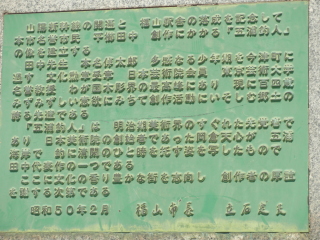 山陽新幹線の開通と 福山駅舎の完成を記念して
本市名誉市民 平櫛田中 創作にかかる「五浦釣人」
の像を建立する
田中先生 本名倬太郎 多感なる少年期を今津町に
過す 文化勲章受章 日本芸術院会員 東京芸術大学
名誉教授 わが国木彫界の最高峰にあり 現に百四歳
みずみずしい意欲にみちて創作活動にいそしむ郷土の
誇る光達である
「五浦釣人」は 明治期美術界のすぐれた先覚者で
あり 日本美術院の創始者であった岡倉天心が 五浦
海岸で 釣に清閑のひと時を托す姿を写したもので
田中代表作の一つである
ここに文化の香り豊かな街を志向し 創作者の厚意
を記する次第である
昭和50年2月 福山市長 立石定夫